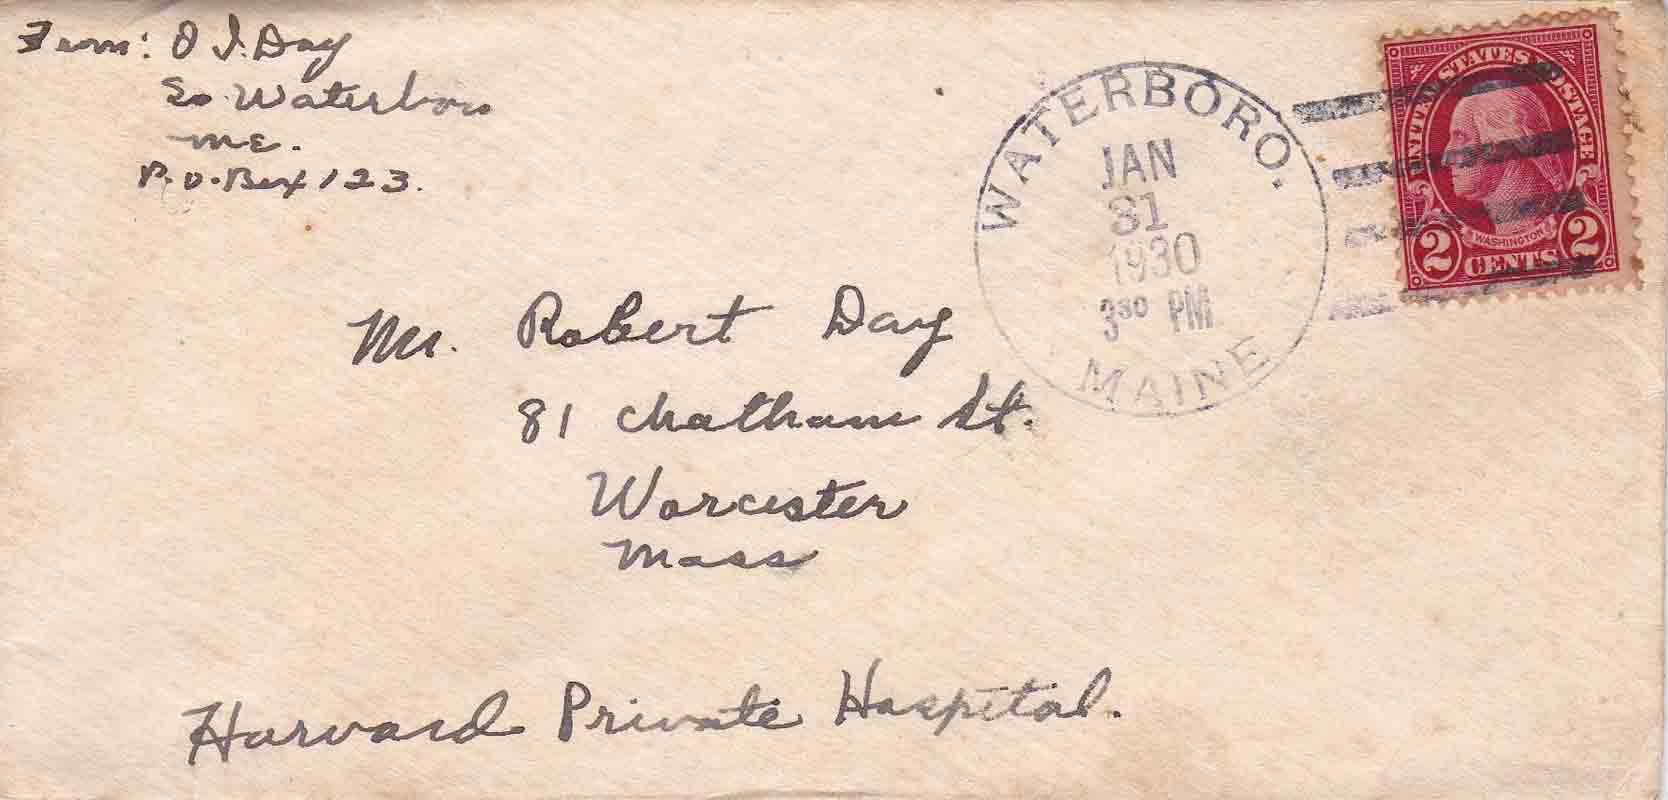 From: O I. Day
So. Waterboro
ME.
P.O. Box 123.
WATERBORO.
JAN
31
1930
3³⁰ PM
MAINE
UNITED STATES POSTAGE
WASHINGTON
2 CENTS 2
Mr. Robert Day
81 Chatham St.
Worcester
Mass
Harvard Private Hospital.